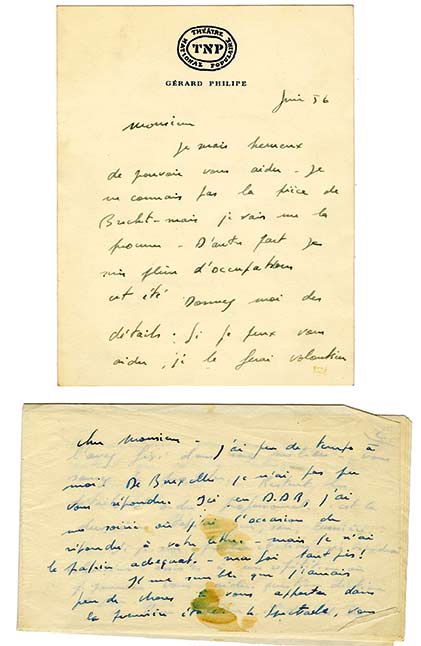 THÉÂTRE NATIONAL POPULAIRE
TNP
GÉRARD PHILIPE
Juin 56
Monsieur
Je serais heureux
de pouvoir vous aider - Je
ne connais pas la pièce de
Brecht - mais je vais me la
procurer - D'autre part je
suis plein d'occupations
cet été Donnez moi des
détails. Si je peux vous
aider, je le ferai volontiers
Cher Monsieur - j'ai peu de temps à
moi. De Bruxelles je n'ai pas pu
vous répondre. Ici en D.D.R, j'ai
une soirée où j'ai l'occasion de
répondre à votre lettre - mais je n'ai
le papier adéquat - ma foi tant pis!
Je me semble que j'aurais
peu de choses à vous apporter dans
la première le spectacle, vous